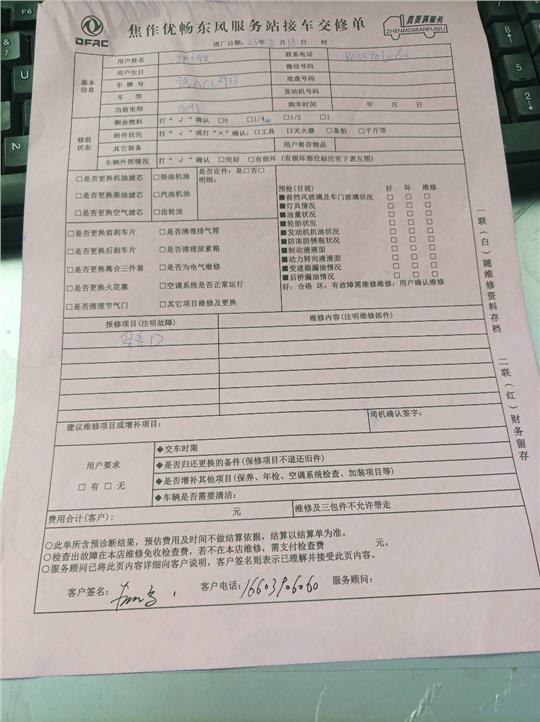 DFAC
焦作优畅东风服务站接车交修单
真美满服务
ZHENMEIMANFUWU
进厂日期: 25年 月 18日 时
基本信息
用户姓名
联系电话
用户生日
微信号码
车牌号
底盘号码
车型
发动机号码
当前里程
购车时间 年 月 日
修前状态
剩余燃料 打“√”确认 □0 □1/4 □1/2 □3/4 □1
附件状况 打“√”或打“×”确认:□工具 □灭火器 □备胎 □千斤顶
其它装备
用户寄存物品
车辆外部情况 打“√”确认 □完好 □有损坏 (有损坏部位标注有下表左图)
□是否更换机油滤芯 □柴油机油
□是否更换柴油滤芯 □汽油机油
□是否更换空气滤芯 □齿轮油
是否定件:是□否□
明细:
□是否更换前刹车片 □是否清理排气筒
□是否更换后刹车片 □是否清理尿素箱
□是否更换离合三件套 □是否为电气维修
□是否更换火花塞 □空调系统是否正常运行
□是否清理节气门 □其它项目维修及更换
预检(目视) 好 坏 维修
■前挡风玻璃及车门玻璃状况 □ □ □
■灯具情况 □ □ □
■油量状况 □ □ □
■轮胎状况 □ □ □
■发动机机油状况 □ □ □
■防冻防锈瓶状况 □ □ □
■制动液液面 □ □ □
■动力转向液液面 □ □ □
■变速箱漏油情况 □ □ □
■后桥漏油情况 □ □ □
好:合格 坏:有故障需维修维修:用户确认维修
报修项目(注明故障)
维修内容(注明维修部件)
建议维修项目或增补项目:
司机确认签字:
用户要求
□ 有 □ 无
◆交车时限
◆是否归还更换的备件(保修项目不退还旧件)
◆是否增补其他项目(保养、年检、空调系统检查、加装项目等)
◆车辆是否需要清洁:
费用合计(客户): 元
维修及三包件不允许带走
○此单所含预诊断结果,预估费用及时间不做结算依据,结算以结算单为准。
○检查出故障在本店维修免收检查费,若不在本店维修,需支付检查费 元。
○服务顾问已将此页内容详细向客户说明,客户签名则表示已理解并接受此页内容。
客户签名:
客户电话:16603906060
服务顾问:
一联(白)随维修资料存档
二联(红)财务留存